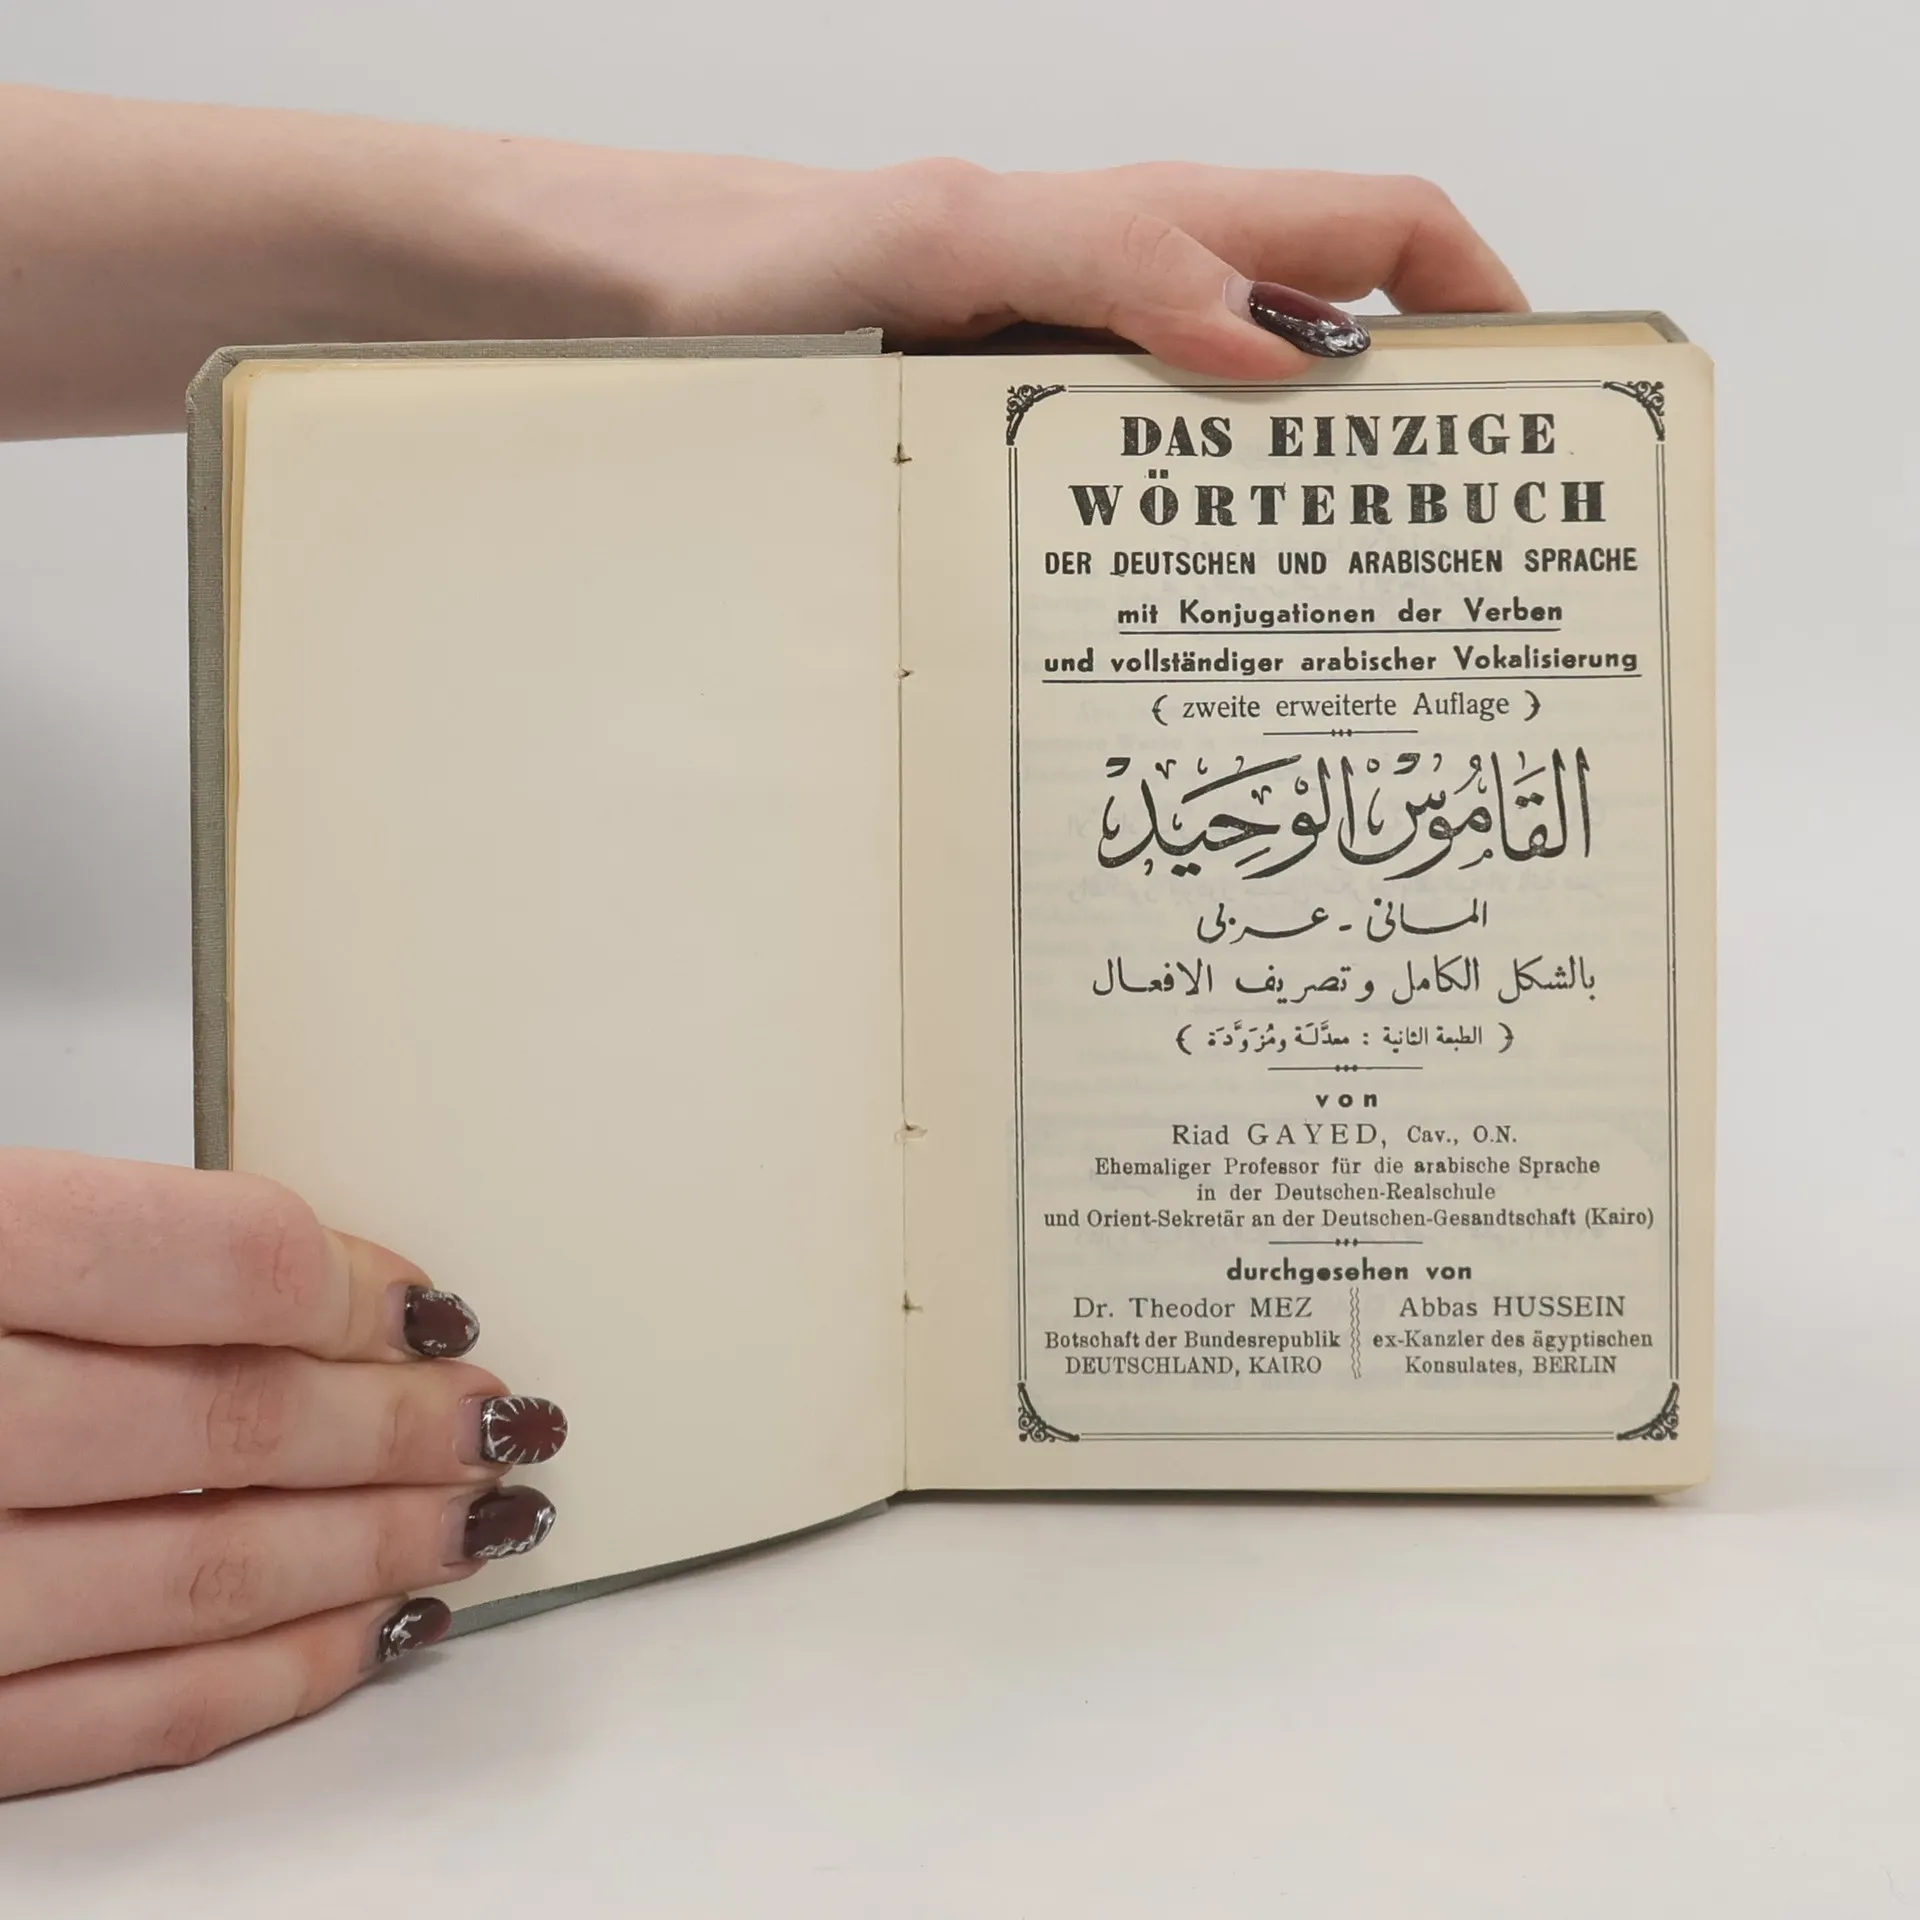 DAS EINZIGE
WÖRTERBUCH
DER DEUTSCHEN UND ARABISCHEN SPRACHE
mit Konjugationen der Verben
und vollständiger arabischer Vokalisierung
( zweite erweiterte Auflage )
القَامُوسْ الْوَحِيدْ
المانى - عربى
بالشكل الكامل و تصريف الافعال
( الطبعة الثانية : معدَّلَة ومُزَوَّدَة )
von
Riad GAYED, Cav., O.N.
Ehemaliger Professor für die arabische Sprache
in der Deutschen-Realschule
und Orient-Sekretär an der Deutschen-Gesandtschaft (Kairo)
durchgesehen von
Dr. Theodor MEZ
Botschaft der Bundesrepublik
DEUTSCHLAND, KAIRO
Abbas HUSSEIN
ex-Kanzler des ägyptischen
Konsulates, BERLIN